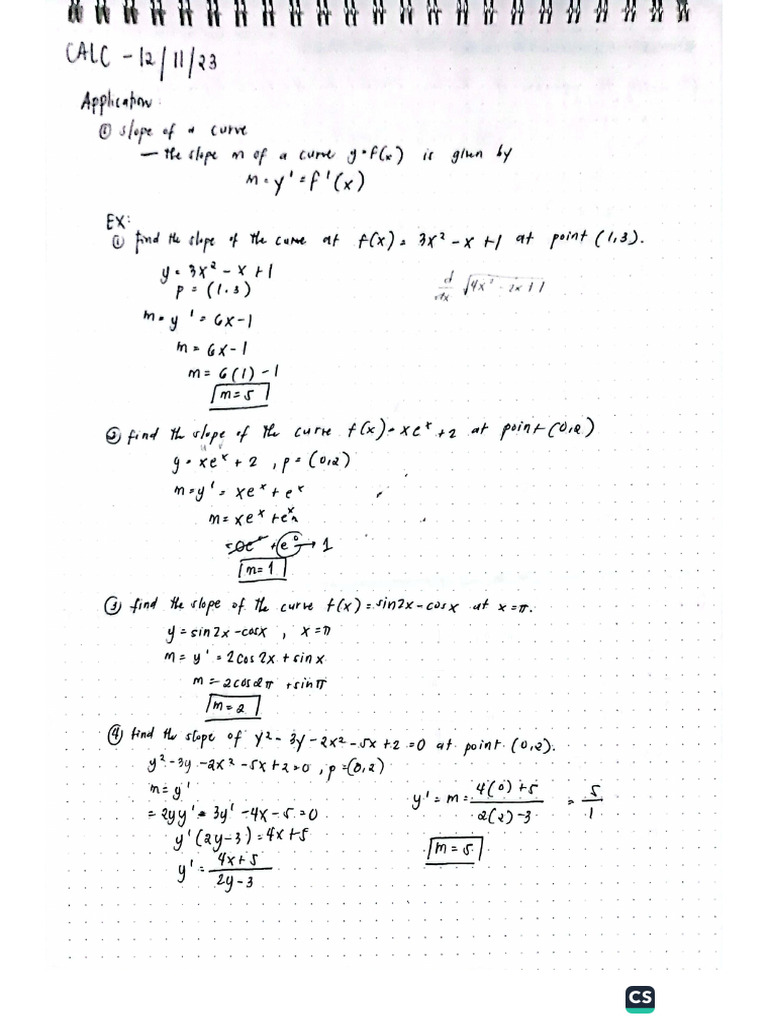 CALC - 12/11/23
Application:
① slope of a curve
— the slope m of a curve y=f(x) is given by
m = y' = f'(x)
EX:
① find the slope of the curve at f(x) = 3x² - x + 1 at point (1,3).
y = 3x² - x + 1
P = (1.3)
d/dx √4x² - 2x + 1
m = y' = 6x-1
m = 6x-1
m = 6(1) -1
m=5
② find the slope of the curve f(x) = xeˣ + 2 at point (0,2)
y = xeˣ + 2 , P = (0,2)
m=y' = xeˣ + eˣ
m= xeˣ + eˣ
= 0e⁰ + e⁰ → 1
m=1
③ find the slope of the curve f(x) = sin2x - cosx at x=π.
y = sin2x - cosx , x=π
m = y' = 2cos2x + sinx
m = 2cos2π + sinπ
m=2
④ find the slope of y² - 3y - 2x² - 5x + 2 = 0 at point (0,2).
y² - 3y - 2x² - 5x + 2 = 0 , P=(0,2)
m = y'
= 2yy' - 3y' - 4x - 5 = 0
y'(2y-3) = 4x+5
y' = 4x+5 / 2y-3
y' = m = 4(0)+5 / 2(2)-3 = 5/1
m = 5
CS